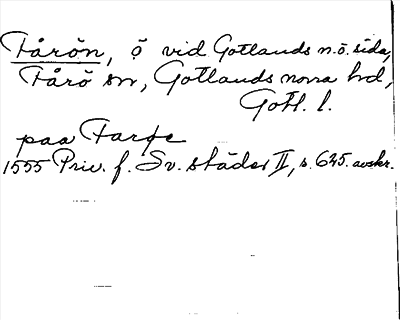 Fårön, ö vid Gotlands n.ö. sida,
Fårö sn, Gotlands norra hd,
Gotl. l.
paa Farøe
1555 Priv. f. Sv. städer II, s. 625. avskr.